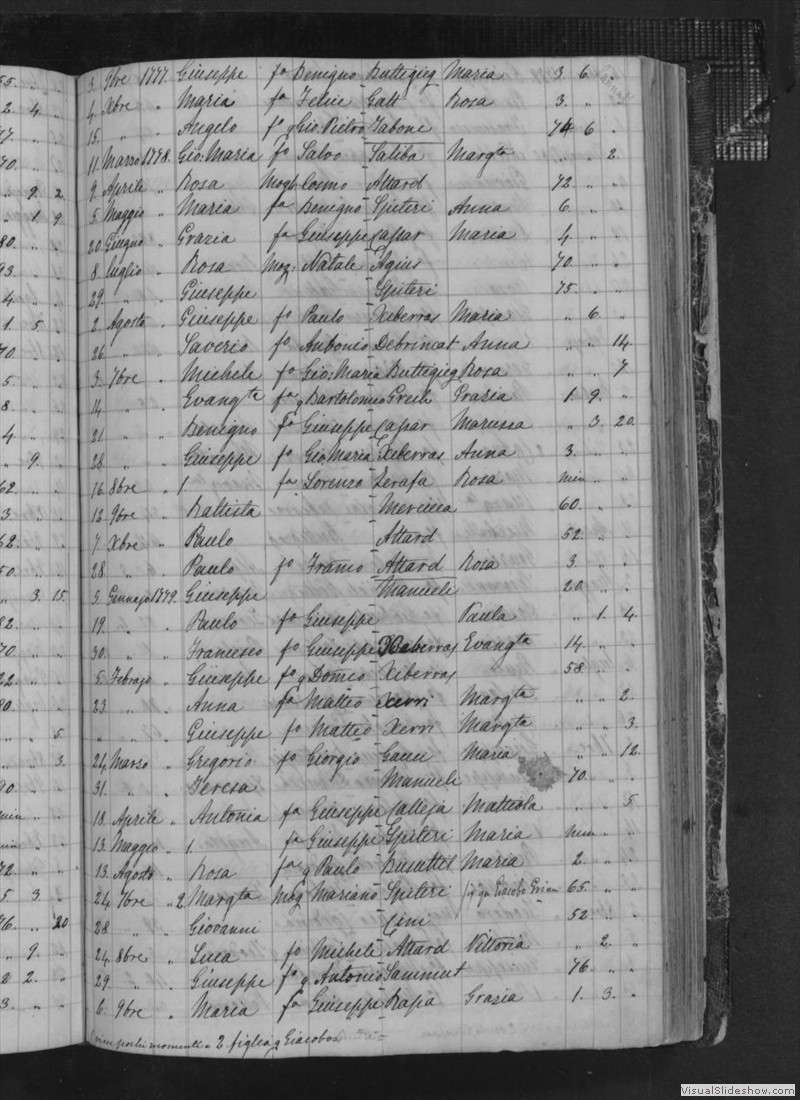 3. 9bre 1777. Giuseppe fo Benigno Buttigieg Maria 3. 6 "
4. Xbre " Maria fa Felice Gatt Rosa 3. " "
15. " " Angelo fo q Gio: Pietro Zabone 74 6 "
11 Marzo 1778. Gio: Maria fo Salvo Saliba Margta " " 2.
9. Aprile " Rosa Mogl Cosmo Attard 72. " "
5. Maggio " Maria fa Benigno Spiteri Anna 6. " "
20. Giugno " Grazia fa Giuseppe Capar Maria 4 " "
8 luglio " Rosa Mog: Natale Agius 70. " "
29. " " Giuseppe Spiteri 75. " "
2. Agosto " Giuseppe fo Paulo Xiberras Maria " 6. "
26. " " Saverio fo Antonio Debrincat Anna " " 14.
3. 7bre " Michele fo Gio: Maria Buttigieg Rosa " " 7
14 " " Evangta fa q Bartolomeo Grech Grazia 1. 9. "
21 " " Benigno fo Giuseppe Capar Marussa " 3. 20.
28 " " Giuseppe fo Gio Maria Xiberras Anna 3. " "
16. 8bre " 1. fa Lorenzo Zerafa Rosa min " "
13. 9bre " Battista Mercieca 60. " "
7. Xbre " Paulo Attard 52. " "
28. " " Paulo fo Franco Attard Rosa 3. " "
5. Gennajo 1779. Giuseppe Manueli 20. " "
19. " " Paulo fo Giuseppe Paula " 1. 4.
30. " " Francesco fo Giuseppe Xiberras Evangta 14. " "
5. Febrajo " Giuseppe fo q Domco Xiberras 58. " "
23. " " Anna fa Matteo Xerri Margta " " 2.
" " " Giuseppe fo Matteo Xerri Margta " " 3.
24. Marzo " Gregorio fo Giorgio Gauci Maria " " 12.
31. " " Teresa Manueli 70. " "
18. Aprile " Antonia fa Giuseppe Calleja Matteola " " 5
13. Maggio " 1. fa Giuseppe Spiteri Maria min " "
13. Agosto " Rosa fa q Paulo Busuttil Maria 2. " "
24. 7bre " 2. Margta Mog Mariano Spiteri 65. " "
28 " " Giovanni Cini 52. " "
24. 8bre " Luca fo Michele Attard Vittoria " 2. "
29. " " Giuseppe fo q Antonio Sammut 76. " "
6. 9bre " Maria fa Giuseppe Rapa Grazia 1. 3. "
pochi momenti = 2. figlia q Giacobo =
VisualSlideshow.com